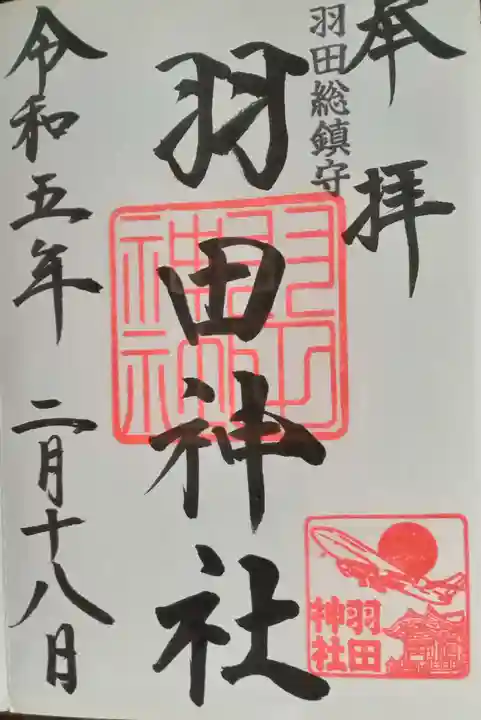 奉拝
羽田総鎮守
羽田神社
令和五年 二月十八日
羽田
神社